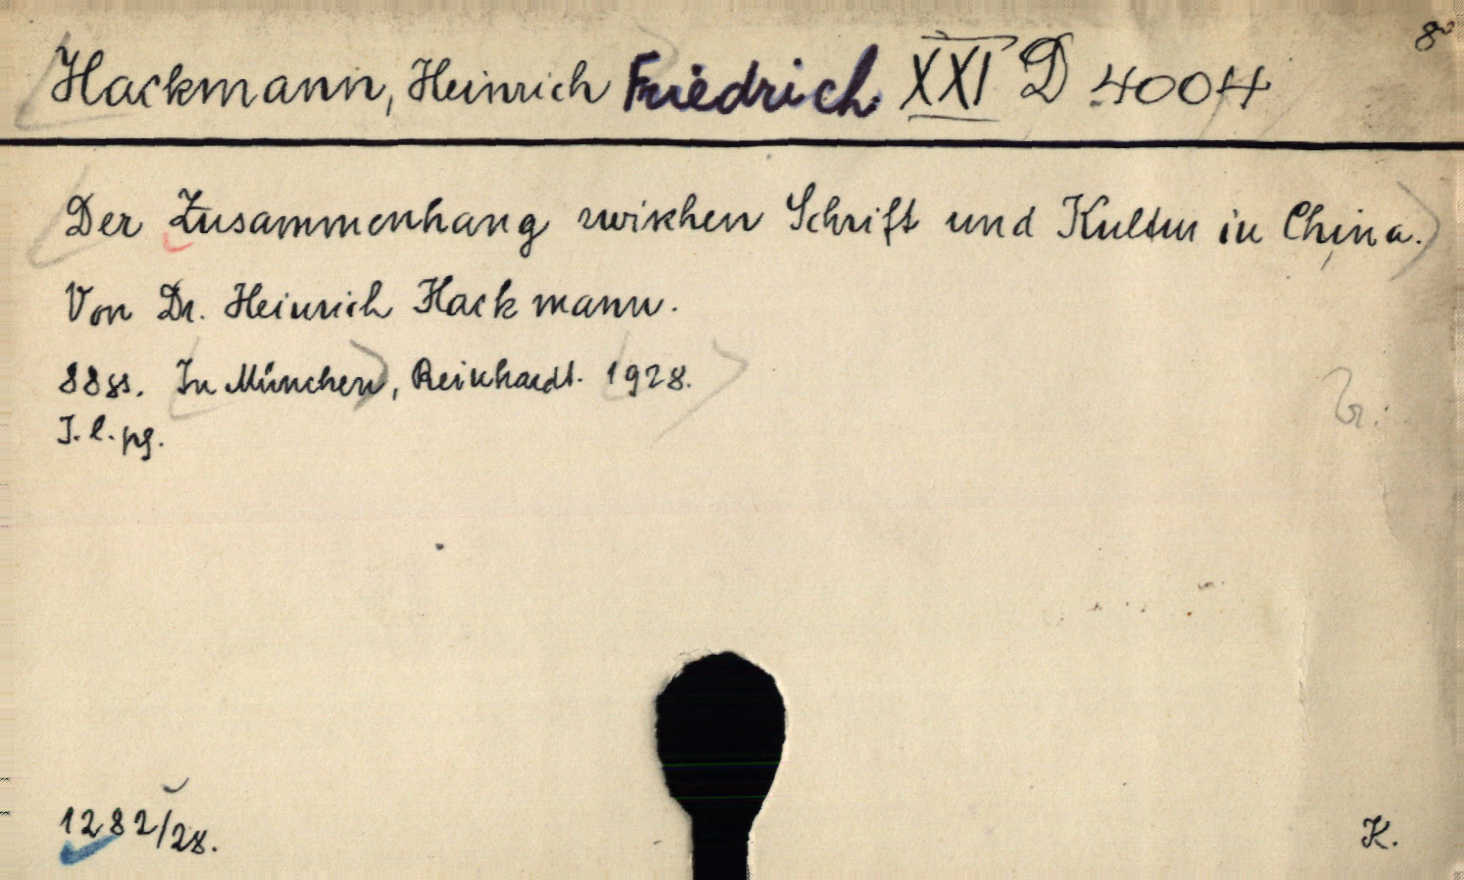 Hackmann, Heinrich Friedrich XXI D 4004 8°
Der Zusammenhang zwischen Schrift und Kultur in China.
Von Dr. Heinrich Hackmann.
88 ss. In München, Reinhardt. 1928.
I. l. pg.
1282/28.
K.